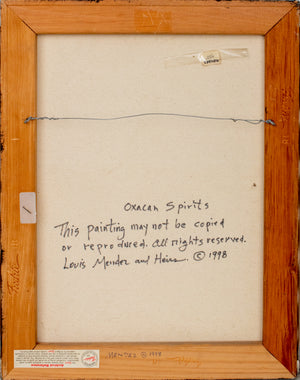 Oxacan Spirits
This painting may not be copied
or reproduced. All rights reserved.
Louis Mendez and Heirs. © 1998
MENDEZ © 1998